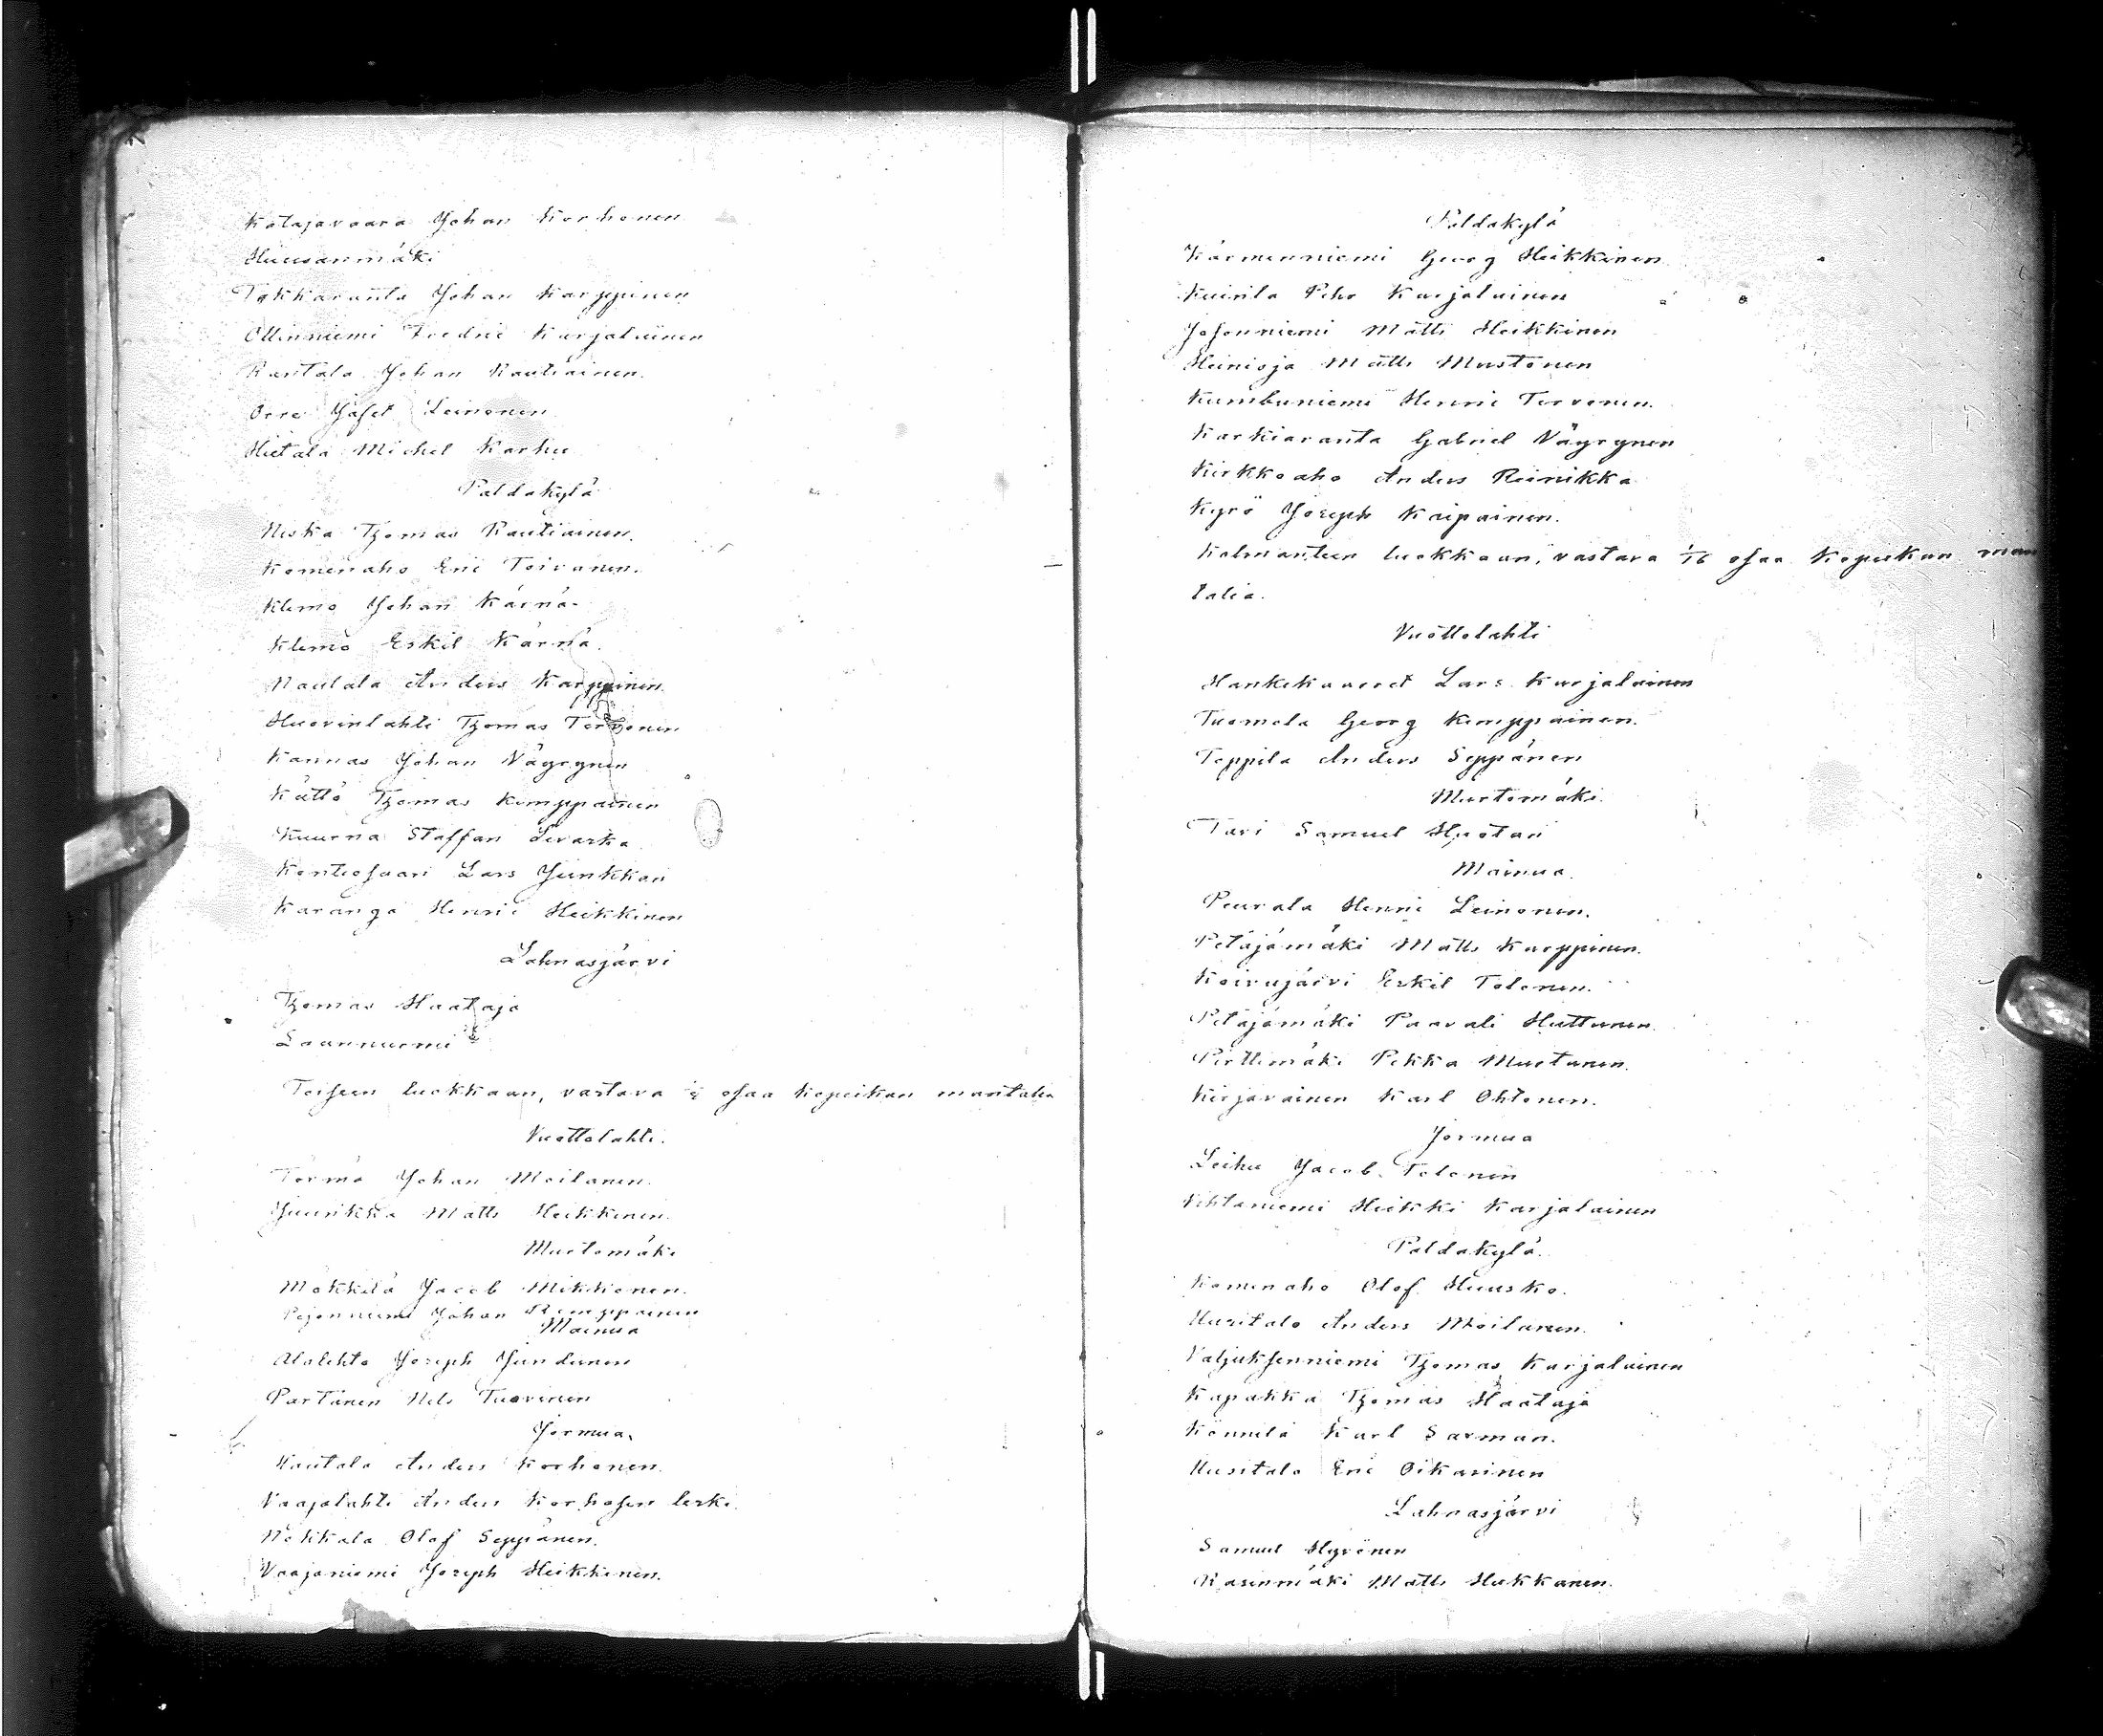 Katajavaara Johan Korhonen
Huusanmäki
Takkaranta Johan Karppinen
Ollinniemi Fredric Karjalainen
Rantala Johan Rautiainen.
Orre Jafet Leinonen
Hietala Michel Karhu
Paldakylä
Niska Thomas Rautiainen.
Komenaho Eric Toivanen.
Klemo Johan Kärnä.
Klemo Eskil Kärnä.
Nautala Anders Karppinen.
Huovinlahti Thomas Tervonen
Kannas Johan Väyrynen
Kättö Thomas Kemppainen
Kuurna Staffan Sivarka
Kontiosaari Lars Juntkkan
Karanga Henric Heikkinen
Lahnasjärvi
Thomas Haataja
Saarnurmi
Toiseen luokkaan, vastava ⅛ osaa kopeikan mantalia
Vuottolahti.
Törmä Johan Moilanen.
Juurikka Matts Heikkinen.
Murtomäki
Mökkilä Jacob Mikkonen.
Pejonniemi Johan Kemppainen
Mainua
Alalehto Joseph Juntunen
Partanen Nils Tuovinen
Jormua.
Rautala Anders Korhonen.
Vaajalahti Anders Korhosen leski.
Nokkala Olof Seppänen.
Vaajaniemi Joseph Heikkinen.
Paldakylä
Kärmenniemi Georg Heikkinen
Kuirila Pehr Karjalainen
Josonniemi Matts Heikkinen
Heinioja Matts Mustonen
Kumbuniemi Henric Tervonen.
Karkiaranta Gabriel Väyrynen
Kirkkoaho Anders Reinikka
Kyrö Joseph Kaipainen.
Kolmanteen luokkaan, vastava 1/16 osaa kopeekan man
talia.
Vuottolahti
Hankikaaret Lars Karjalainen
Tuomela Georg Kemppainen.
Toppila Anders Seppänen
Murtomäki.
Tari Samuel Huotari
Mainua.
Peurala Henric Leinonen.
Petäjämäki Matts Karppinen.
Koivujärvi Eskil Tolonen.
Petäjämäki Paavali Huttunen
Pirttimäki Pekka Mustonen.
Kirjavainen Karl Ohtonen.
Jormua
Leihu Jacob Tolonen
Vihtaniemi Heikki Karjalainen
Paldakylä.
Komenaho Olof Huusko.
Uusitalo Anders Moilanen.
Valjuksenniemi Thomas Karjalainen
Kapakka Thomas Haataja
Könnilä Karl Sarman.
Uusitalo Eric Oikarinen
Lahnasjärvi
Samuel Hyvönen
Rasinmäki Matts Hakkanen.